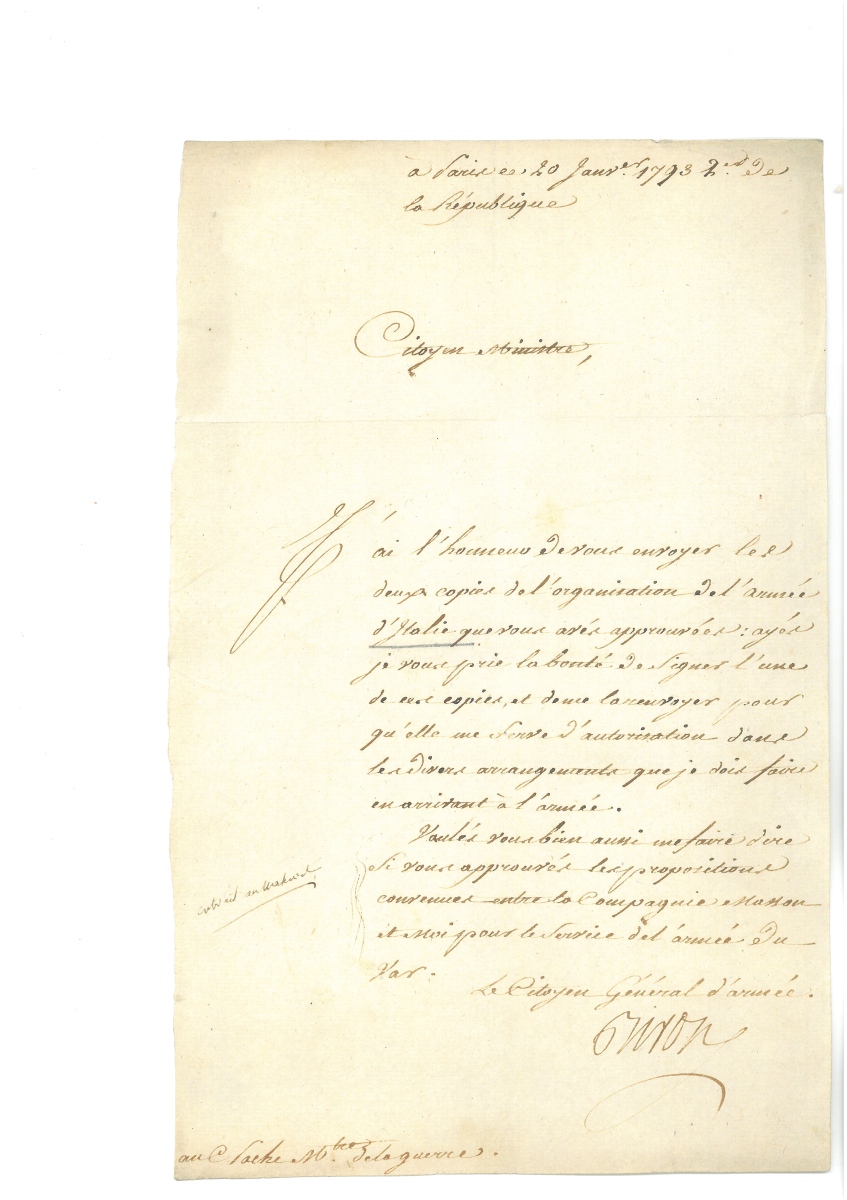 à Paris ce 20 Janv.er 1793 2.e de
la République
Citoyen Ministre,
J'ai l'honneur de vous envoyer les
deux copies de l'organisation de l'armée
d'Italie que vous avés approuvées : ayés
je vous prie la bonté de signer l'une
de ces copies, et de me la renvoyer pour
qu'elle me serve d'autorisation dans
les divers arrangements que je dois faire
en arrivant à l'armée.
Voulés vous bien aussi me faire dire
si vous approuvés les propositions
convenues entre la Compagnie Masson
et moi pour le service de l'armée du
Var.
Le Citoyen Général d'armée.
Biron
au C Pache M.tre de la guerre.